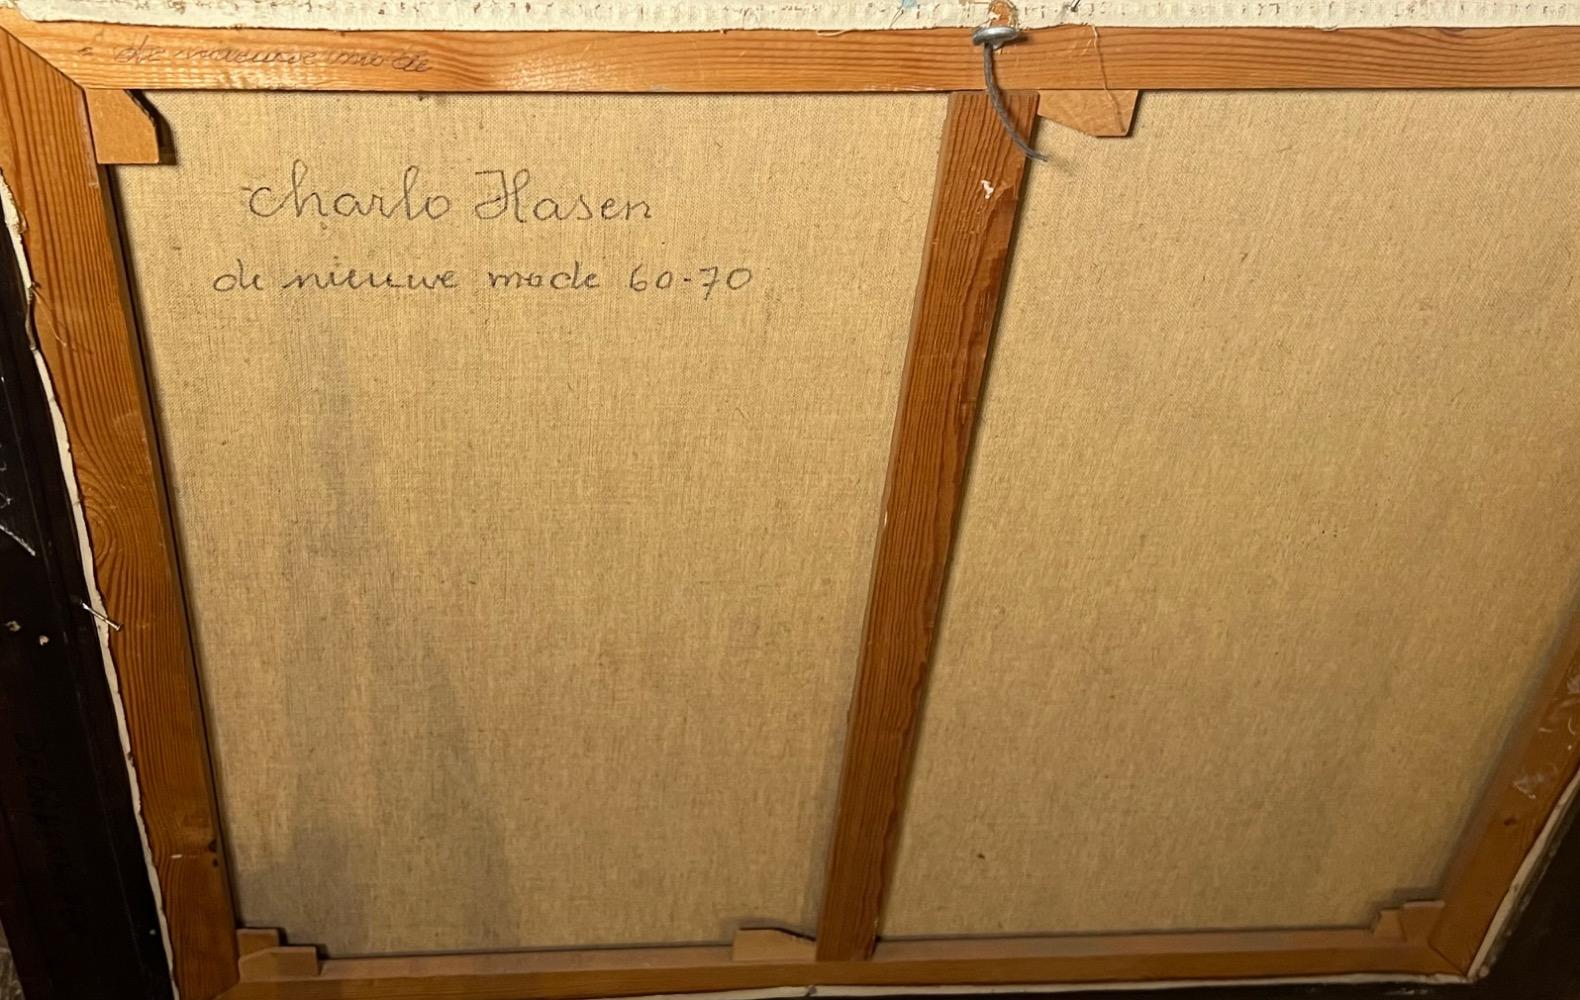 de nieuwe mode
Charlo Hasen
de nieuwe mode 60-70